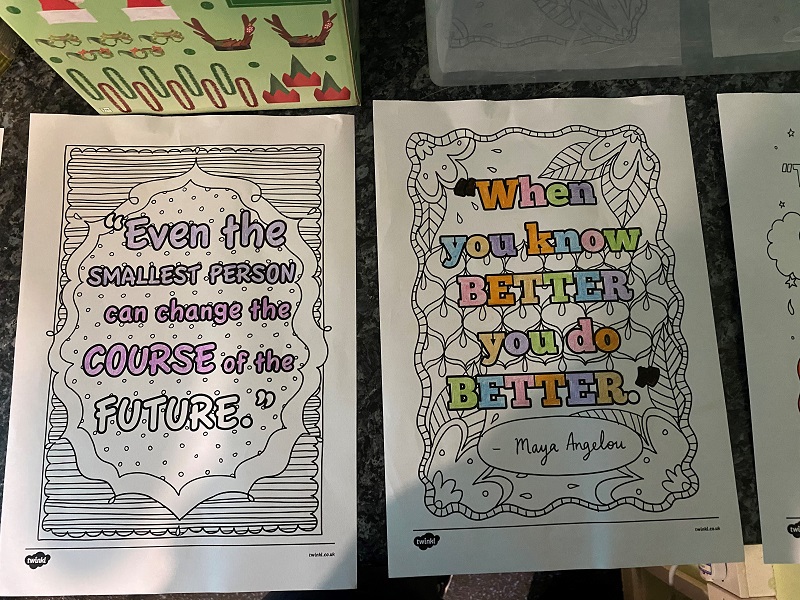 “Even the
SMALLEST PERSON
can change the
COURSE of the
FUTURE.”
twinkl
twinkl.co.uk
“When
you know
BETTER
you do
BETTER.”
- Maya Angelou
twinkl
twinkl.co.uk